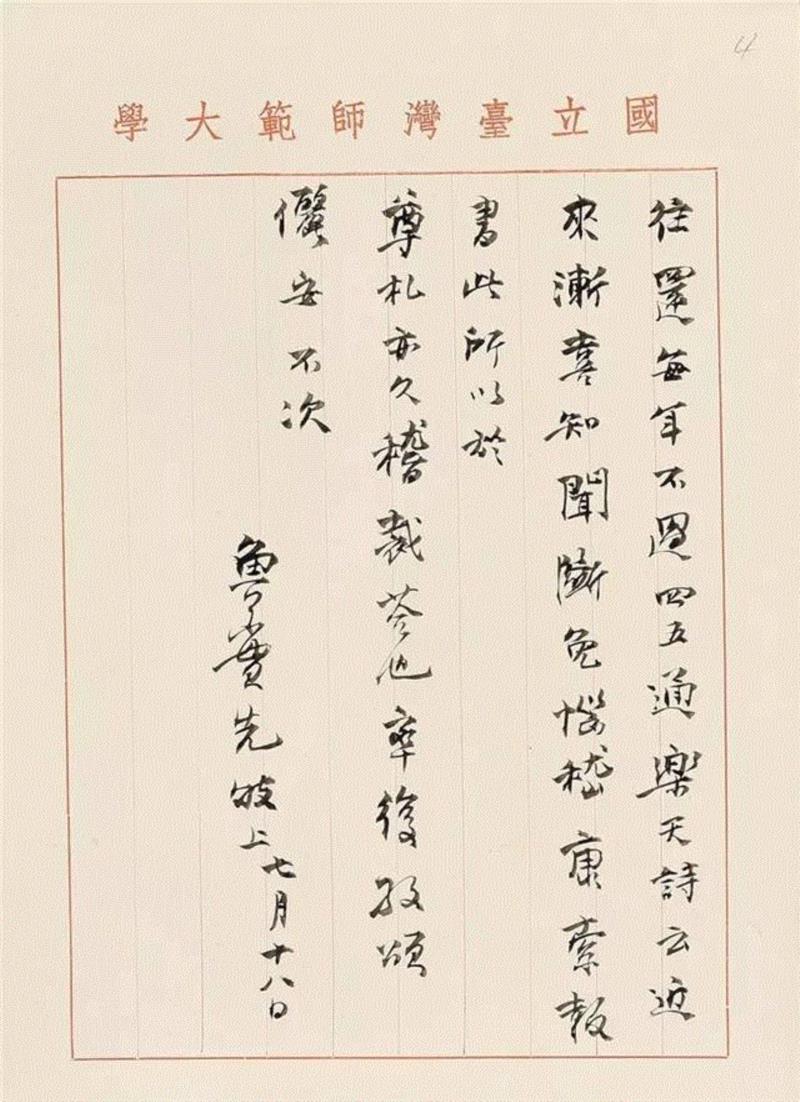 4
國立臺灣師範大學
往還每年不過四五通樂天詩云近
來漸喜知聞斷免惱嵇康索報
書此所以於
尊札亦久稽裁荅也率復敬頌
儷安不次
魯實先敬上七月十八日